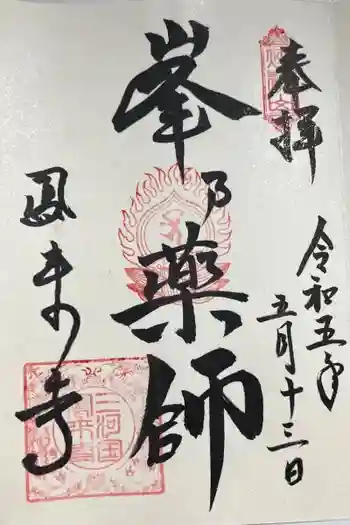 奉拝
令和五年
五月十三日
峯乃薬師
鳳来寺
三河国
鳳来寺